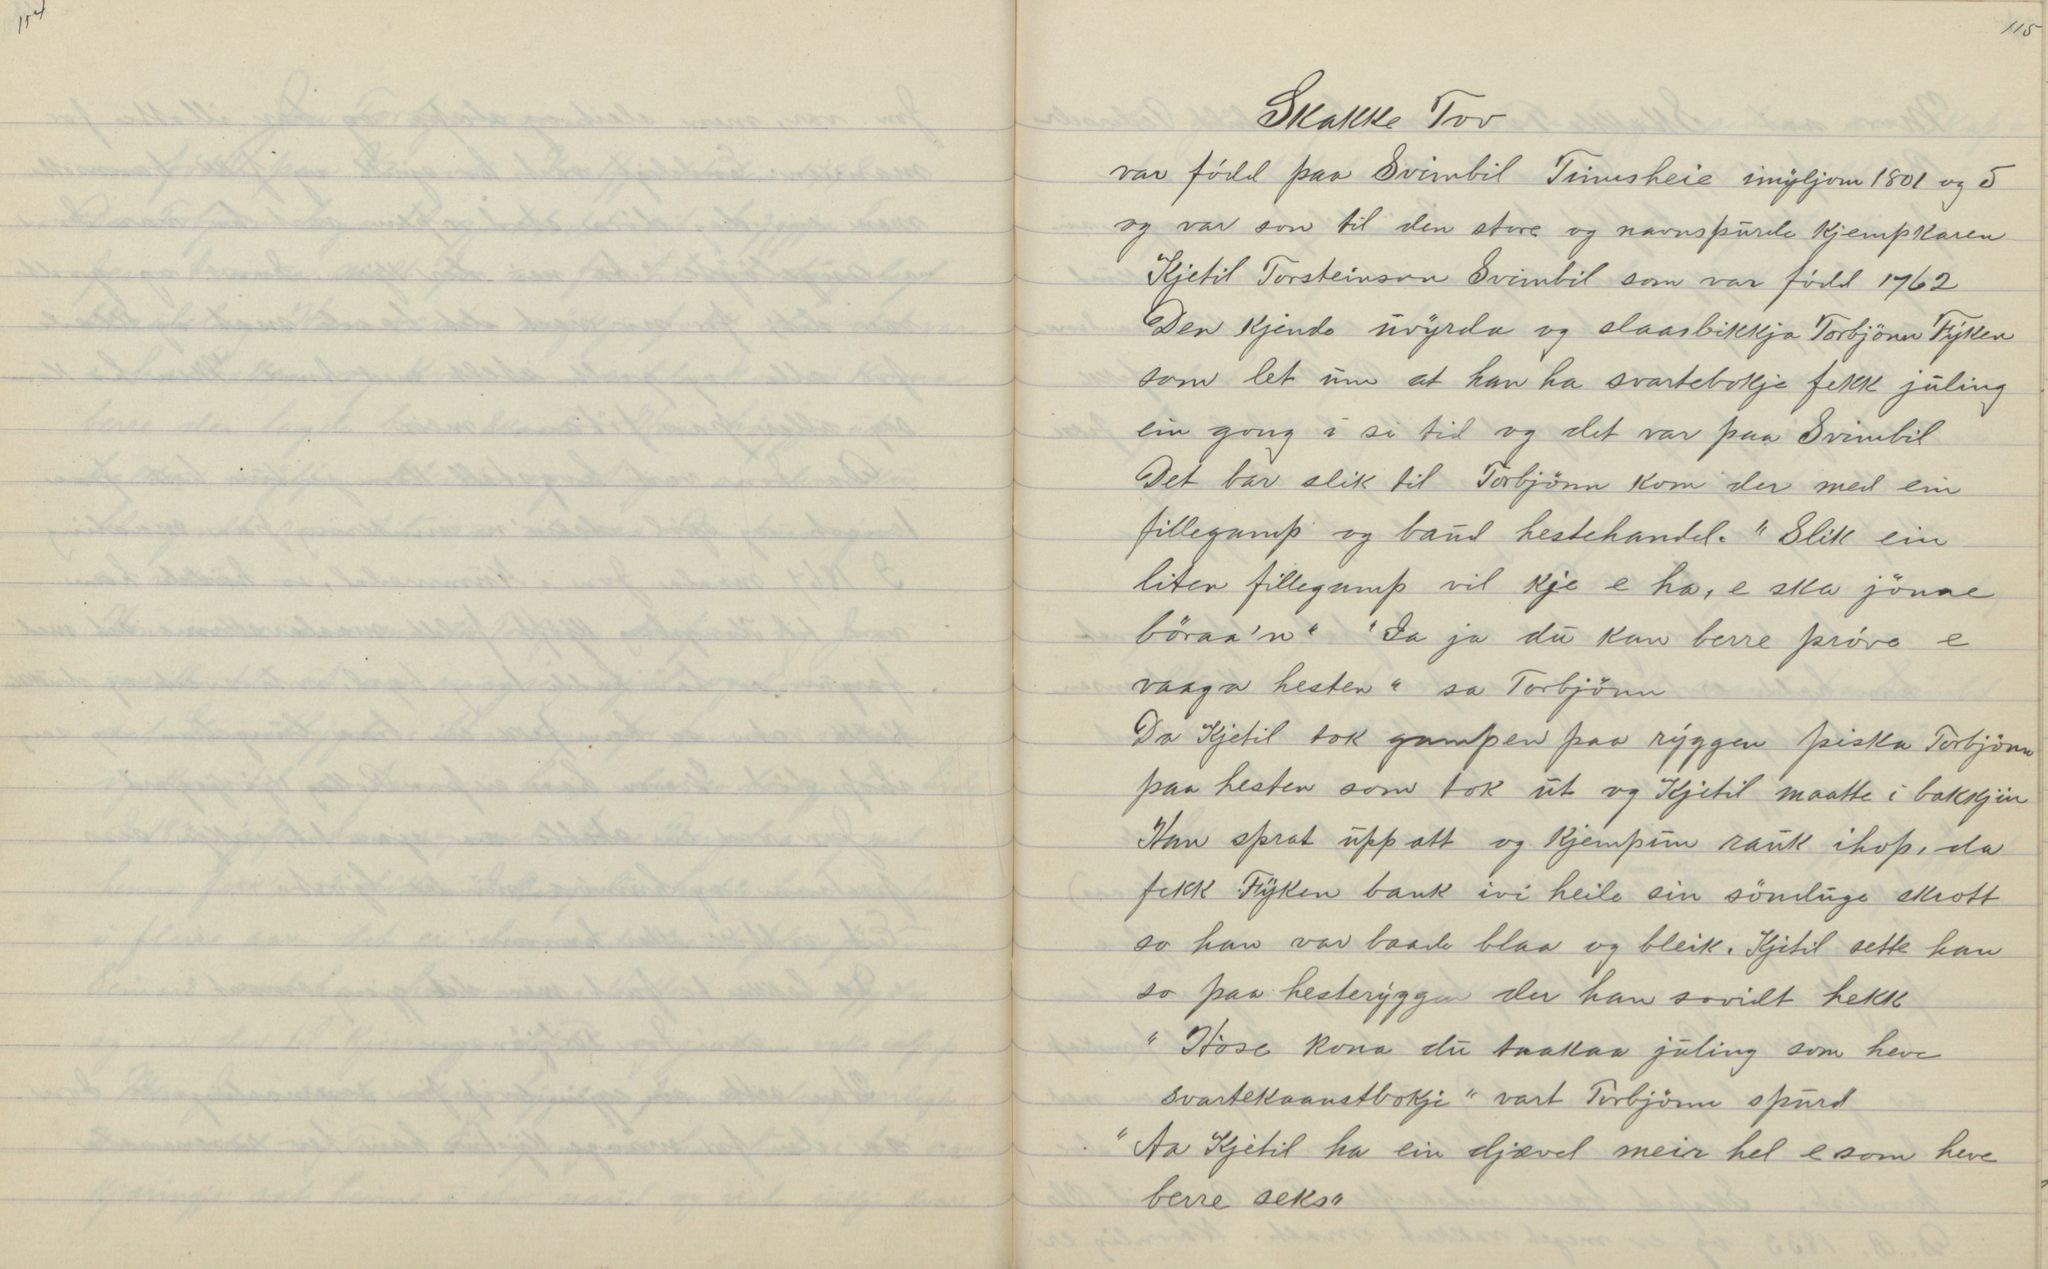 114
115
Skakke Tov
var född paa Svimbil Tinnsheie imyljom 1801 og 5
og var son til den store og navnspurde Kjempkaren
Kjetil Torsteinson Svimbil som var född 1762
Den kjende uvyrda og slaasbikkja Torbjönn Fyken
som let um at han ha svartebokje fekk juling
ein gong i si tid og det var paa Svimbil
Det bar slik til Torbjönn kom der med ein
fillegamp og baud hestehandel. "Slik ein
liten fillegamp vil kje e ha, e ska jönne
böraa'n" "Ja ja du kan berre pröve e
vaaga hesten" sa Torbjönn
Da Kjetil tok gampen paa ryggen piska Torbjönn
paa hesten som tok ut og Kjetil maatte i bakkjin
Han sprat upp att og Kjempun rauk ihop, da
fekk Fyken bank ivi heile sin sönduge skrott
so han var baade blaa og bleik. Kjetil sette han
so paa hesteryggen der han sovidt hekk
"Hose kona du taakaa juling som heve
svartekaanstbokje" vart Torbjönn spurd
"Aa Kjetil ha ein djævel meir hel e som heve
berre seks"